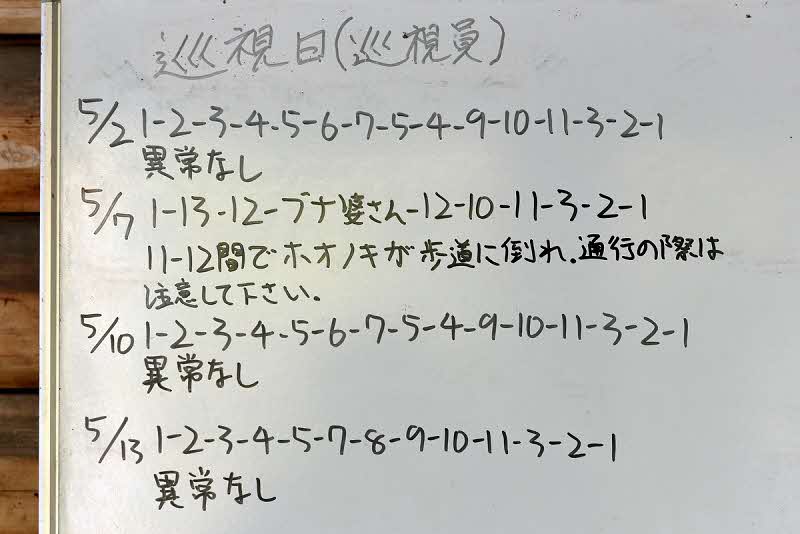 巡視日(巡視員)
5/2 1-2-3-4-5-6-7-5-4-9-10-11-3-2-1
異常なし
5/7 1-13-12-ブナ婆さん-12-10-11-3-2-1
11-12間でホオノキが歩道に倒れ、通行の際は
注意して下さい。
5/10 1-2-3-4-5-6-7-5-4-9-10-11-3-2-1
異常なし
5/13 1-2-3-4-5-7-8-9-10-11-3-2-1
異常なし